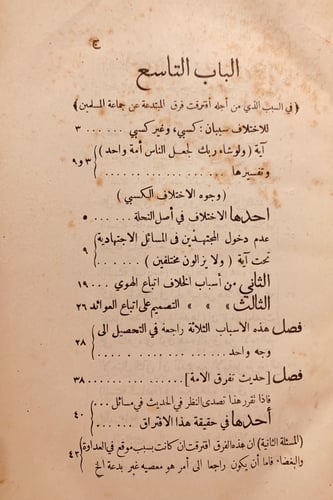 ج
الباب التاسع
﴿ في السبب الذي من أجله افترقت فرق المبتدعة عن جماعة المسلمين ﴾
للاختلاف سببان : كسبي ، وغير كسبي ... ... ٣
آية ( ولو شاء ربك لجعل الناس أمة واحدة )
وتفسيرها ... ... ... ... ... } ٣ و٩
( وجوه الاختلاف الكسبي )
احدها الاختلاف في أصل النحلة ... ... ... ٥
عدم دخول المجتهدين في المسائل الاجتهادية
تحت آية ( ولا يزالون مختلفين ) ... ... } ٩
الثاني من أسباب الخلاف اتباع الهوي ... ... ١٩
الثالث » » » التصميم على اتباع العوائد ٢٦
فصل هذه الأسباب الثلاثة راجعة في التحصيل الى
وجه واحد ... ... ... ... } ٢٨
فصل [ حديث تفرق الامة ] ... ... ... ٣٨
فاذا تقرر هذا تصدى النظر في الحديث في مسائل ...
أحدها في حقيقة هذا الافتراق ... ... } ٤٠
( المسئلة الثانية ) ان هذه الفرق افترقت ان كانت بسبب موقع في العداوة
والبغضاء فاما أن يكون راجعا الى أمر هو معصيه غير بدعة الخ } ٤٢